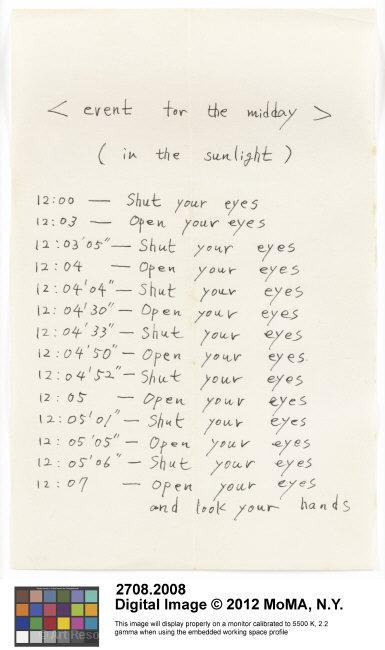 < event for the midday >
( in the sunlight )
12:00 — Shut your eyes
12:03 — Open your eyes
12:03'05" — Shut your eyes
12:04 — Open your eyes
12:04'04" — Shut your eyes
12:04'30" — Open your eyes
12:04'33" — Shut your eyes
12:04'50" — Open your eyes
12:04'52" — Shut your eyes
12:05 — Open your eyes
12:05'01" — Shut your eyes
12:05'05" — Open your eyes
12:05'06" — Shut your eyes
12:07 — Open your eyes
and look your hands
2708.2008
Digital Image © 2012 MoMA, N.Y.
This image will display properly on a monitor calibrated to 5500 K, 2.2
gamma when using the embedded working space profile
© Art Reso